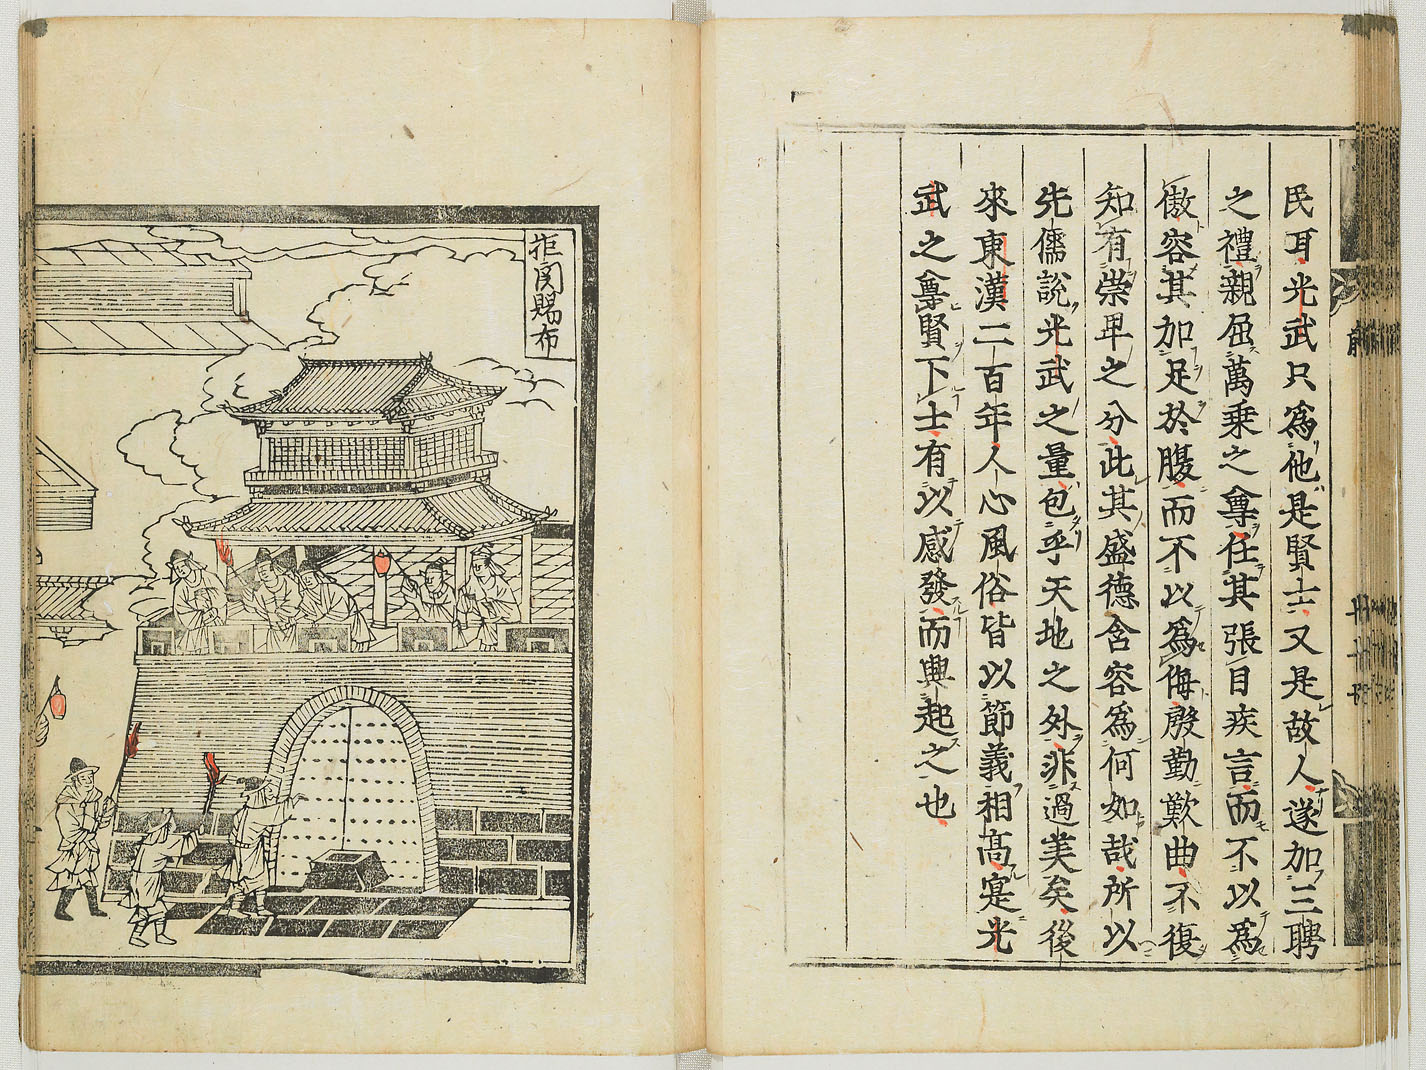 民耳光武只爲他是賢士又是故人遂加三聘
之禮親屈萬乗之尊任其張目疾言而不以爲
傲容其加足於腹而不以爲侮慇勤歎曲不復
知有崇卑之分此其盛德含容爲何如哉所以
先儒說光武之量包乎天地之外非過美矣後
來東漢二百年人心風俗皆以節義相高寔光
武之尊賢下士有以感發而興起之也
拒関賜布